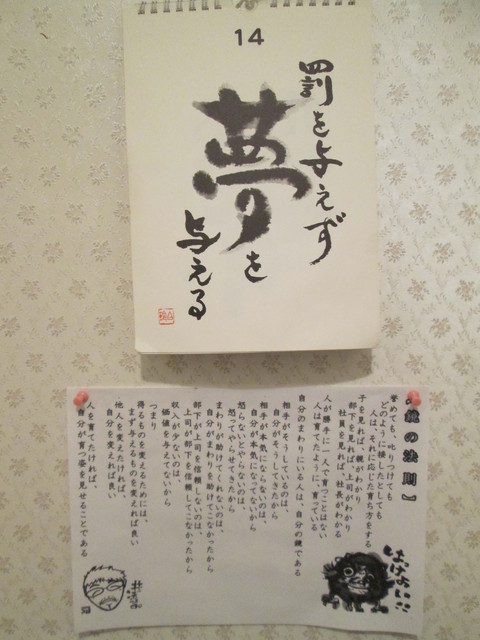 14
罰を与えず
夢を
与える
鏡の法則】
誉めても、叱りつけても
どのように接したとしても
人は、それに応じた育ち方をする
子を見れば、親がわかり
部下を見れば、上司がわかり
社員を見れば、社長がわかる
人が勝手に一人で育つことはない
人は育てたように、育っている
自分のまわりにいる人は、自分の鏡である
相手がそうしているのは、
自分がそうしてきたから
相手が本気にならないのは、
自分が本気になってないから
怒らないとやらないのは、
怒ってやらせてきたから
まわりが助けてくれないのは、
自分がまわりを助けてこなかったから
部下が上司を信頼しないのは、
上司が部下を信頼してこなかったから
収入が少ないのは、
価値を与えてないから
つまり
得るものを変えるためには、
まず与えるものを変えれば良い
他人を変えたければ、
自分を変えれば良い
人を育てたければ、
自分が育つ姿を見せることである
はっけよいこ